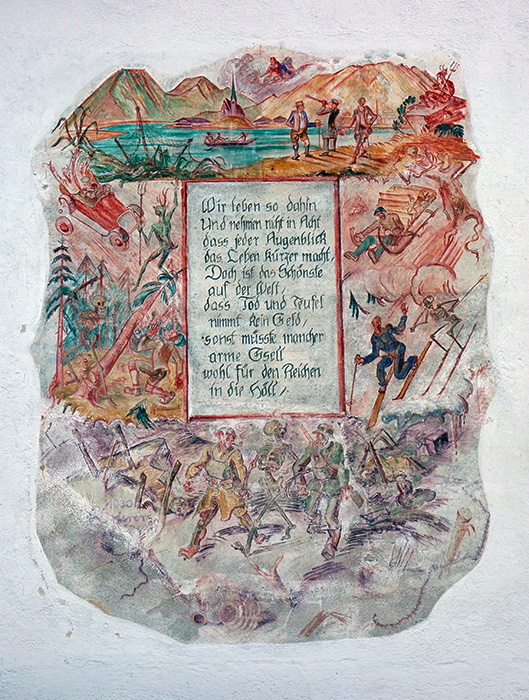 Wir leben so dahin
Und nehmen nicht in Acht
dass jeder Augenblick
das Leben kürzer macht,
Doch ist das Schönste
auf der Welt,
dass Tod und Teufel
nimmt kein Geld,
sonst müsste mancher
arme Gsell
wohl für den Reichen
in die Höll,